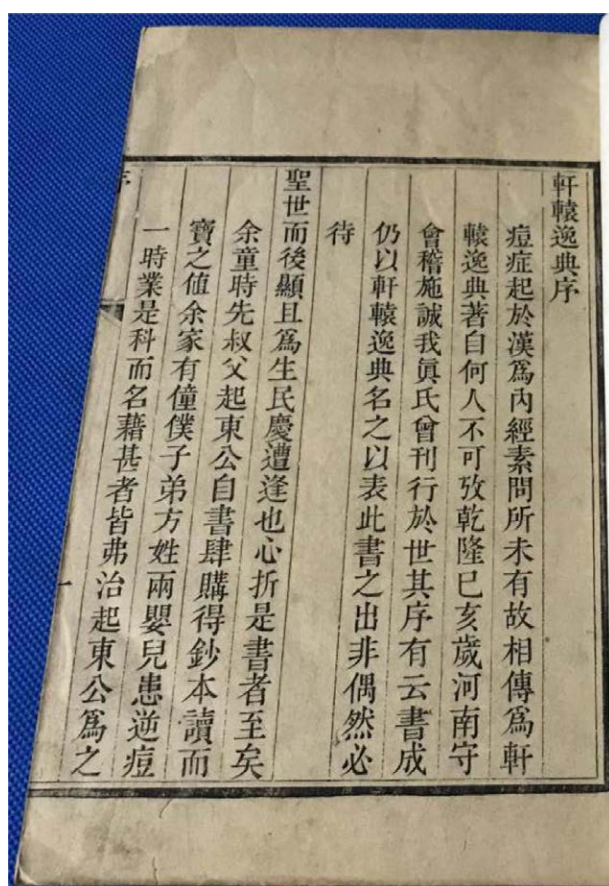 軒轅逸典序
痘症起於漢爲內經素問所未有故相傳爲軒
轅逸典著自何人不可攷乾隆己亥歲河南守
會稽施誠我眞氏曾刊行於世其序有云書成
仍以軒轅逸典名之以表此書之出非偶然必
待
聖世而後顯且爲生民慶遭逢也心折是書者至矣
余童時先叔父起東公自書肆購得鈔本讀而
寶之値余家有僮僕子弟方姓兩嬰兒患逆痘
一時業是科而名藉甚者皆弗治起東公爲之